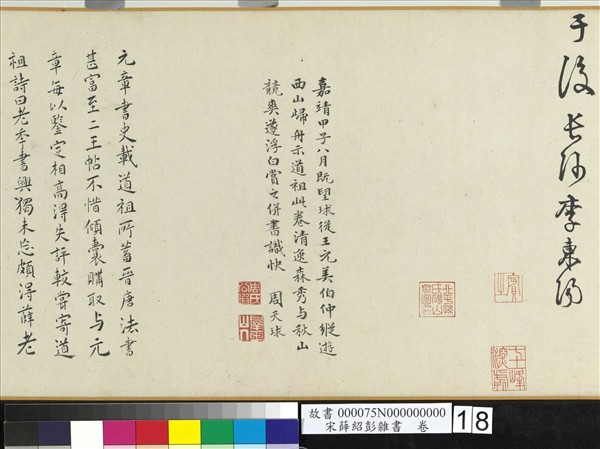 于後長沙李東陽
嘉靖甲子八月既望球從王元美伯仲縱遊
西山歸舟示道祖此卷清逸森秀与秋山
競爽遂浮白賞之併書識快 周天球
元章書史載道祖所蓄晉唐法書
甚富至二王帖不惜傾囊購取与元
章每以鑒定相高得失評較嘗寄道
祖詩曰老年書興獨未忘頗得薛老
故書 000075N000000000
宋薛紹彭雜書 卷
18